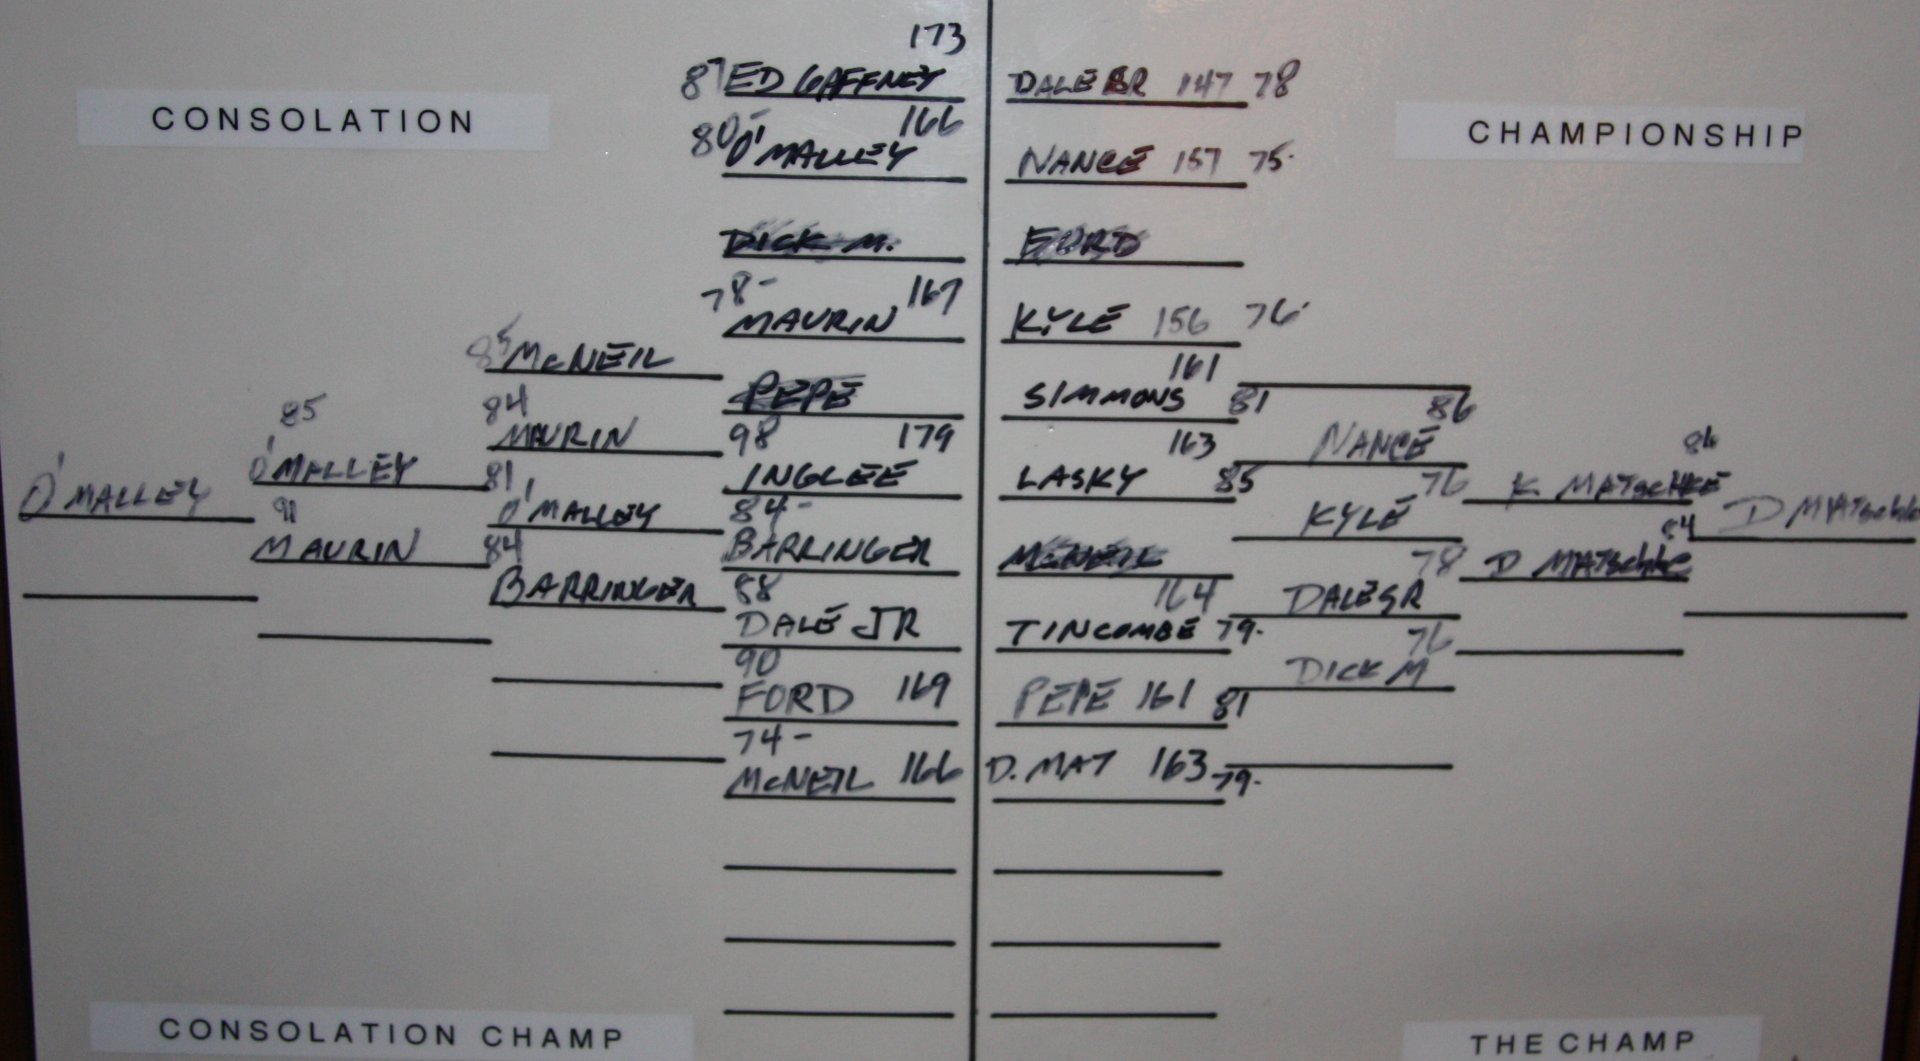 CONSOLATION
O'MALLEY
85
O'MALLEY
91
MAURIN
85 McNEIL
84
MAURIN
81
O'MALLEY
84
BARRINGER
173
87 ED GAFFNEY
80- 166
O'MALLEY
DICK M.
78- 167
MAURIN
PEPE
98 179
INGLEE
84-
BARRINGER
88
DALE JR
90
FORD 169
74-
McNEIL 166
CONSOLATION CHAMP
CHAMPIONSHIP
DALE SR 147 78
NANCE 157 75-
FORD
KYLE 156 76-
161
SIMMONS 81
163
LASKY 85
McNEIL
164
TINCOMBE 79-
PEPE 161 81
D. MAT 163 79-
86
NANCE
76
KYLE
78
DALE SR
76
DICK M
86
K. MATSCHKE
84
D MATSCHKE
D MATSCHKE
THE CHAMP